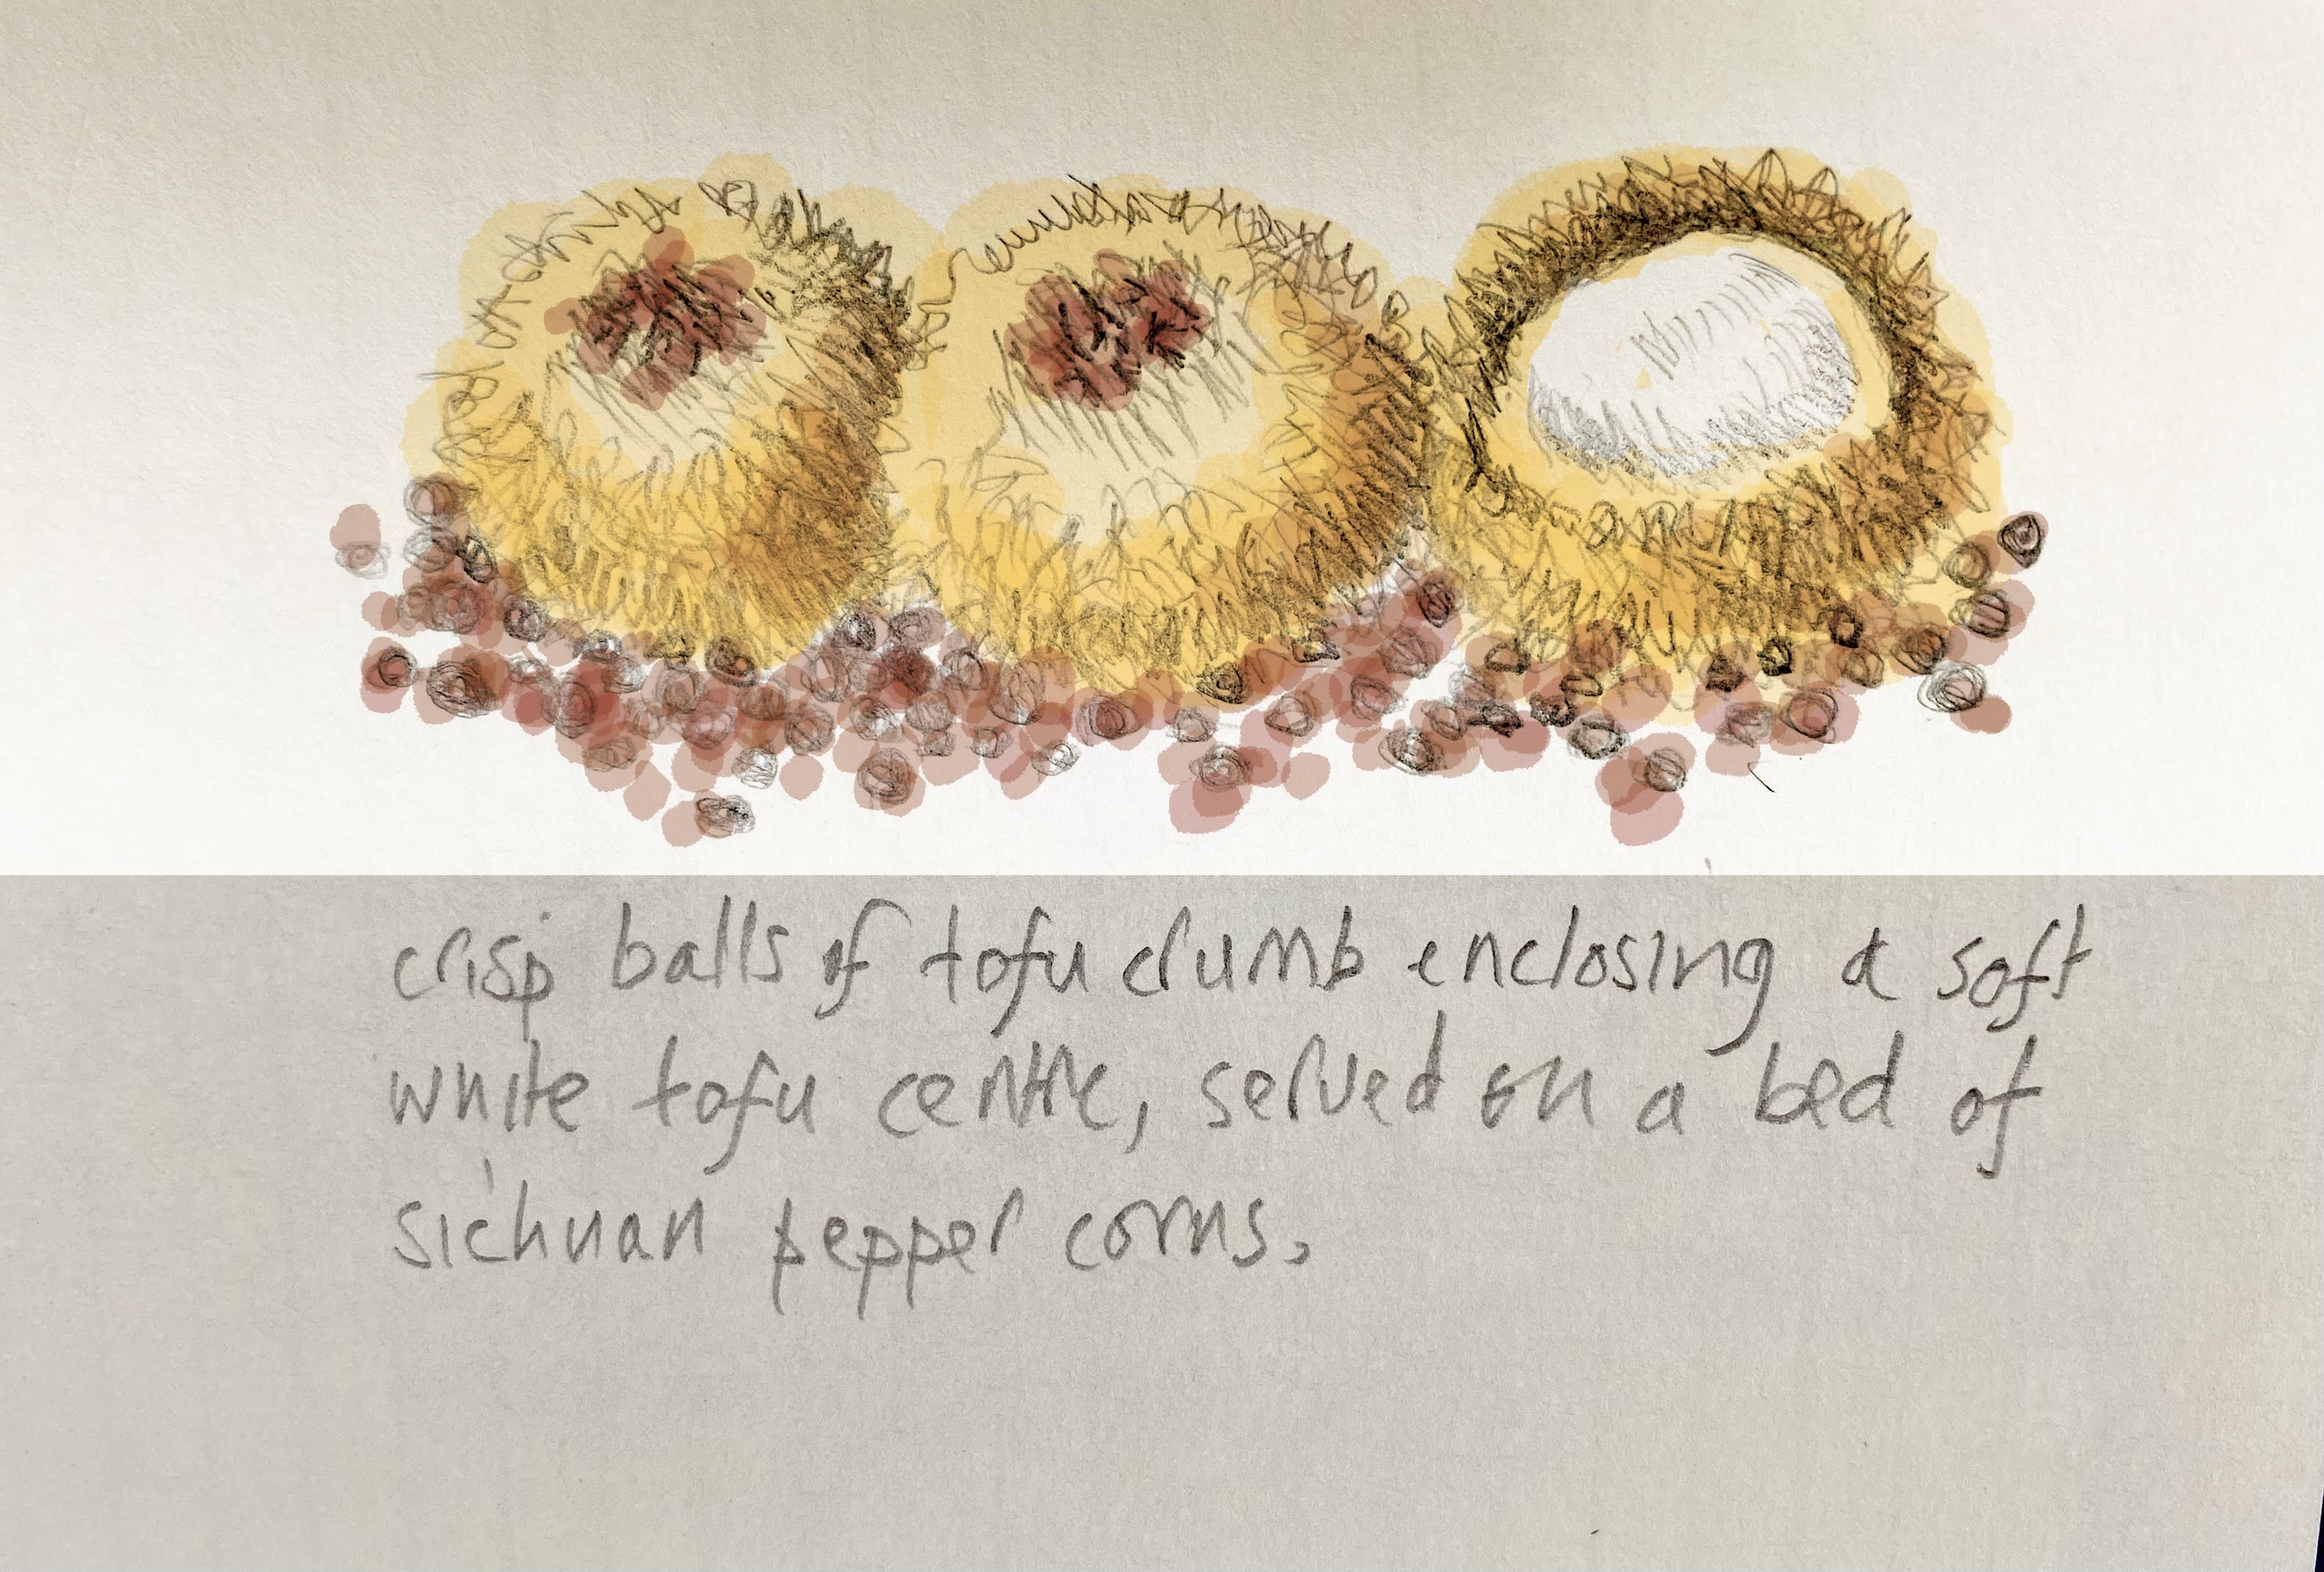 crisp balls of tofu crumb enclosing a soft
white tofu centre, served on a bed of
sichuan pepper corns.